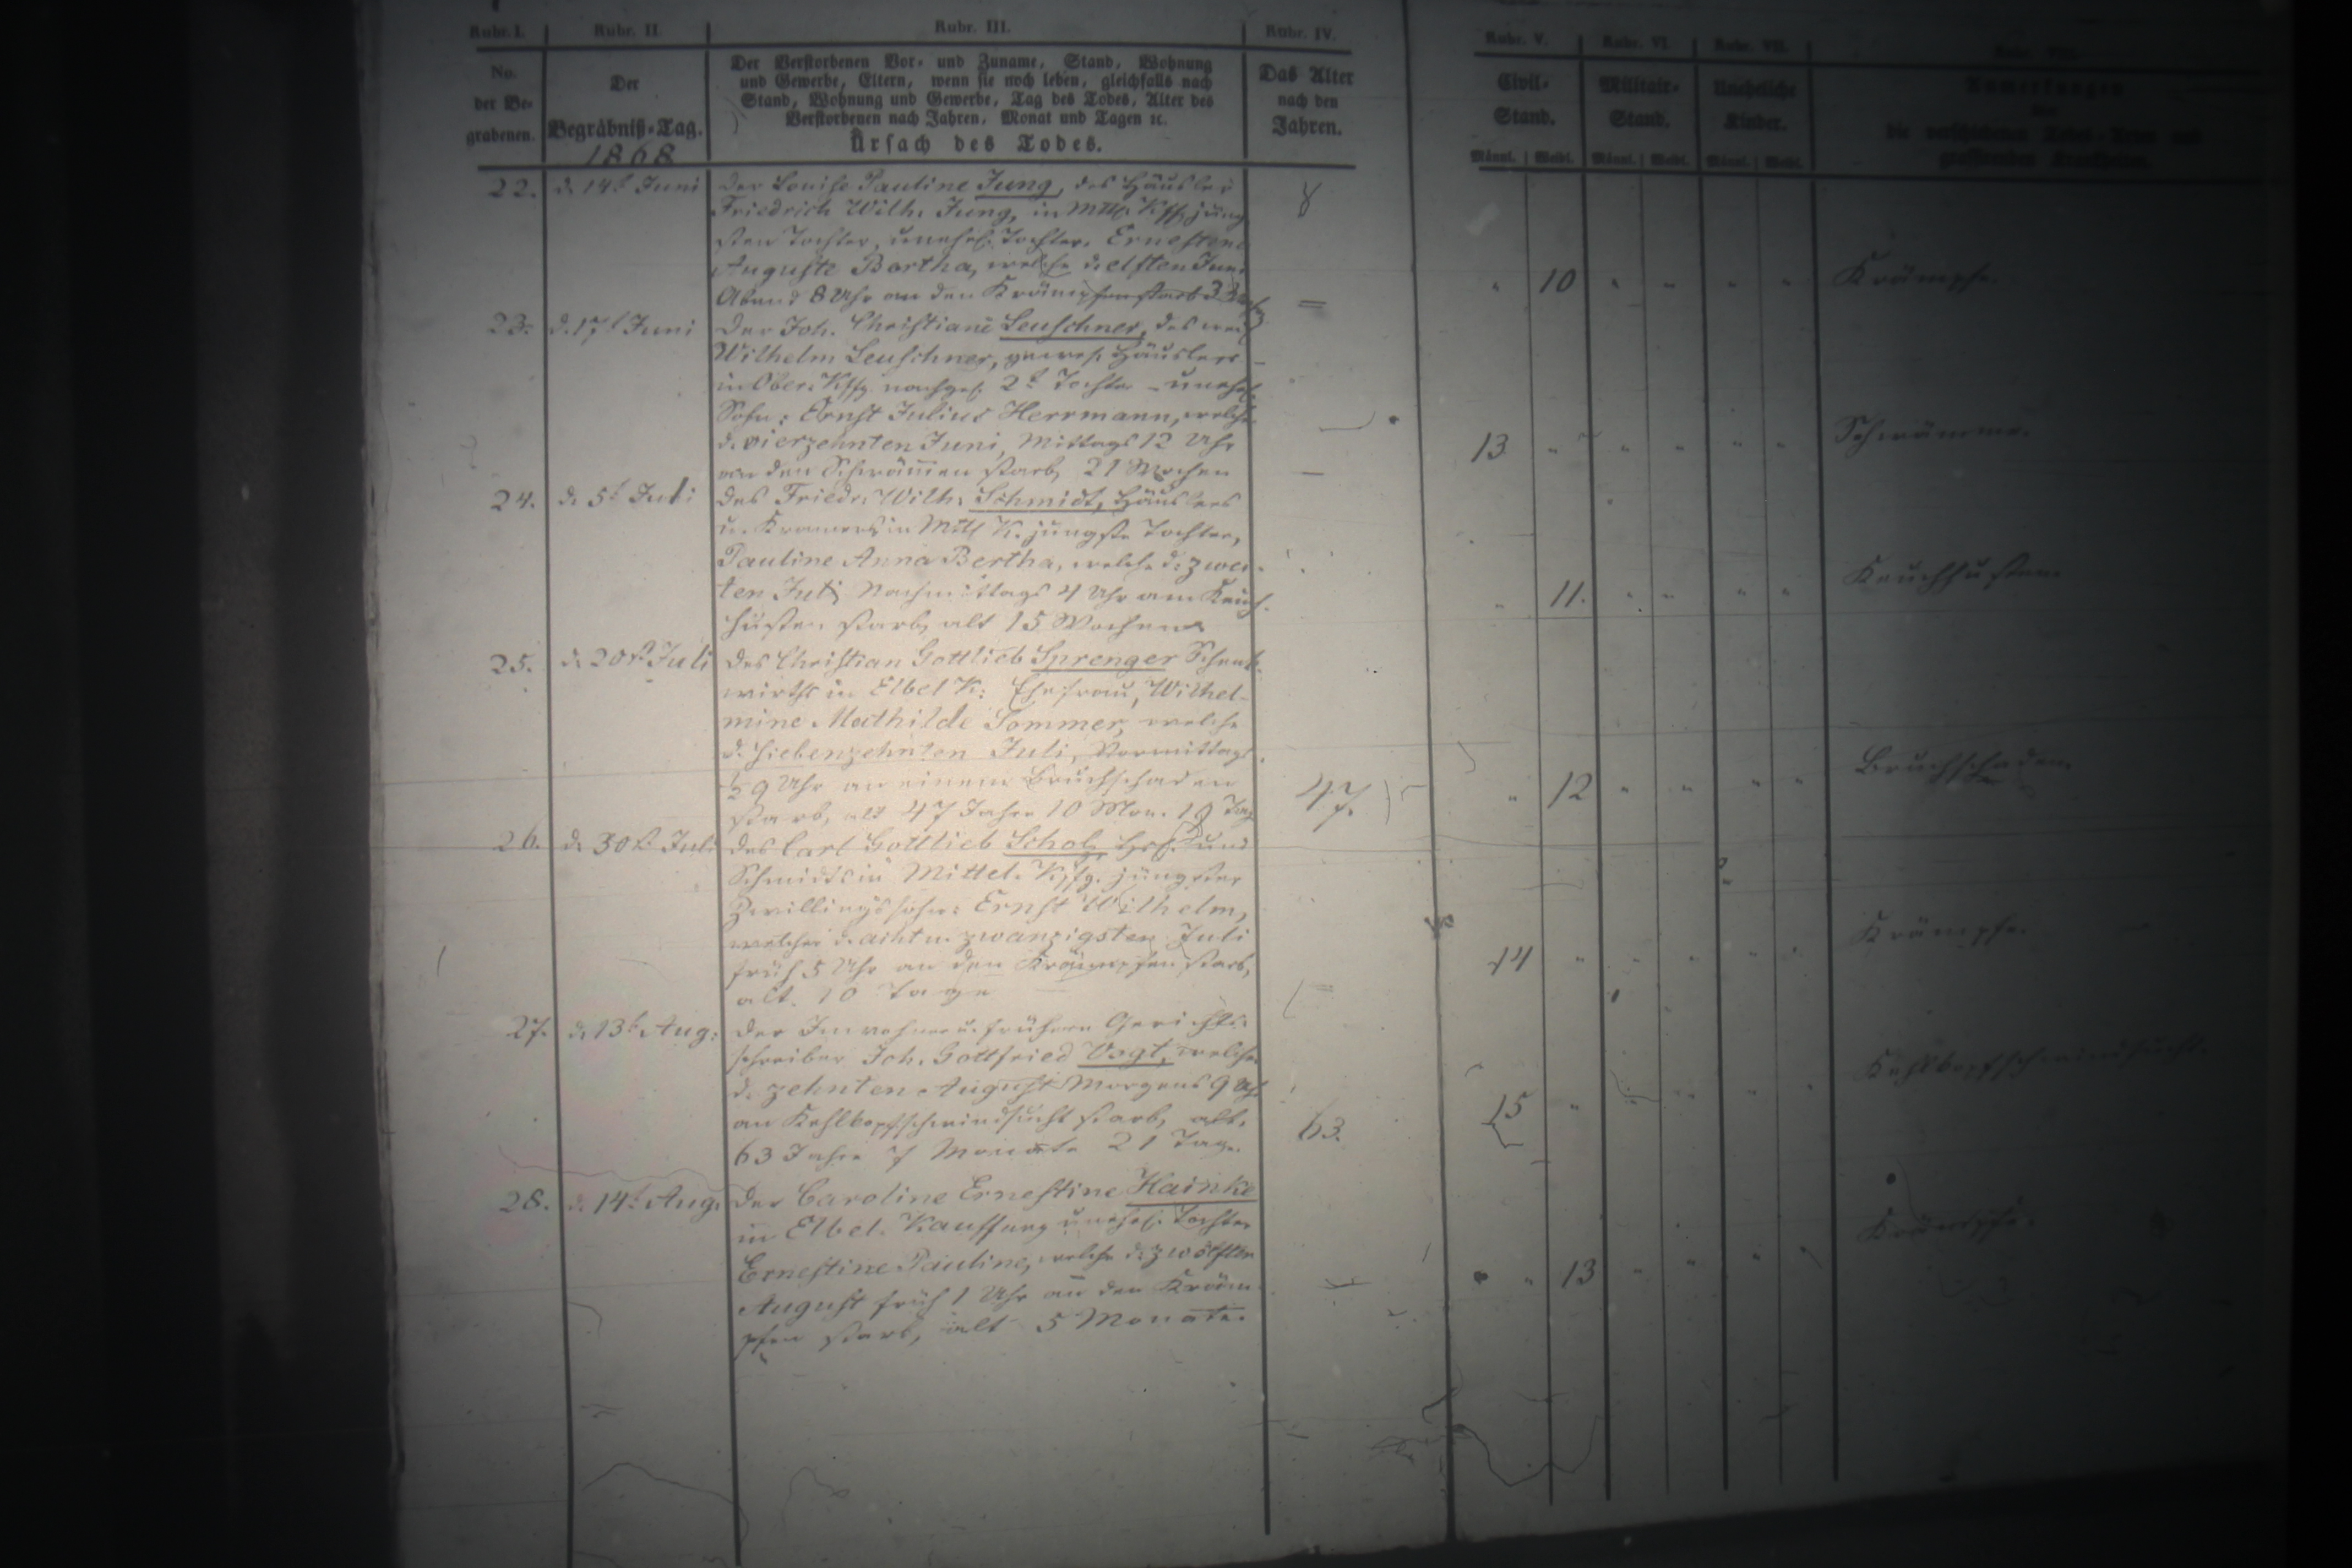 Rubr. I. Rubr. II. Rubr. III. Rubr. IV. Rubr. V. Rubr. VI. Rubr. VII.
No. der Begrabenen.
Der Begräbniß-Tag.
1868
Der Verstorbenen Vor- und Zuname, Stand, Wohnung
und Gewerbe, Eltern, wenn sie noch leben, gleichfalls nach
Stand, Wohnung und Gewerbe, Tag des Todes, Alter des
Verstorbenen nach Jahren, Monat und Tagen ꝛc.
Ursach des Todes.
Das Alter
nach den
Jahren.
Civil-
Stand.
Militair-
Stand.
Uneheliche
Kinder.
Männl. Weibl. Männl. Weibl. Männl. Weibl.
22. d. 14t Juni Der Louise Pauline Jung, des Häusler
Friedrich Wilh. Jung, in Mttl. Kffg. jüng-
sten Tochter, unehel. Tochter, Ernestine
Auguste Bertha, welche d. elften Juni
Abend 8 Uhr an den Krämpfen starb
" 10 " " " " Krämpfe.
23. d. 17t Juni Der Joh. Christiane Leuschner, des
Wilhelm Leuschner, gewes. Häuslers
in Ober-Kffg. nachgel. 2t Tochter - unehel.
Sohn: Ernst Julius Herrmann, welcher
d. vierzehnten Juni, Mittags 12 Uhr
an den Schwämmen starb, 21 Wochen
13 " " " " " Schwämme.
24. d. 5t Juli Des Friedr. Wilh. Schmidt, Häuslers
u. Kramers in Mttl K. jüngste Tochter,
Pauline Anna Bertha, welche d. zwei-
ten Juli Nachmittags 4 Uhr am Keuch-
husten starb, alt 15 Wochen
" 11. " " " " Keuchhusten
25. d. 20t Juli Des Christian Gottlieb Sprenger Schenk-
wirths in Elbel K. Ehefrau, Wilhel-
mine Mathilde Sommer, welche
d. siebenzehnten Juli, Vormittags
½ 9 Uhr an einem Bruchschaden
starb, alt 47 Jahre 10 Mon. Tag
47. " 12 " " " " Bruchschaden
26. d. 30t Juli Des Carl Gottlieb Scholz und
Schmidts in Mittel-Kffg. jüngster
Zwillingssohn: Ernst Wilhelm,
welcher d. acht u. zwanzigsten Juli
früh 5 Uhr an den Krämpfen starb,
alt. 10 Tage
14 " " " " " Krämpfe.
27. d. 13t Aug: Der Inwohner u. frühere Gerichts-
schreiber Joh. Gottfried Vogt, welcher
d. zehnten August Morgens 9 Uhr
an Kehlkopfschwindsucht starb, alt.
63 Jahre 7 Monate 21 Tage.
63. 15 " " " " " Kehlkopfschwindsucht.
28. d. 14t Aug. Der Caroline Ernestine Hainke
in Elbel. Kauffung unehel. Tochter
Ernestine Pauline, welche d. zwölften
August früh 1 Uhr an den Kräm-
pfen starb, alt 5 Monate.
" 13 " " " " Krämpfe.